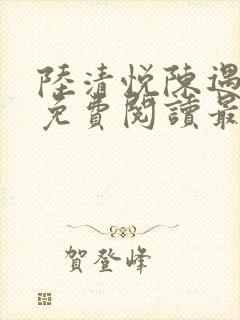 陸清悅陳遇
免費閱讀最
賀登峰